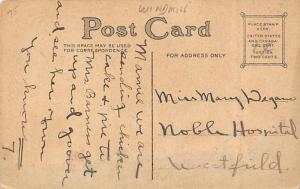 WINDMILL
Post Card
THIS SPACE MAY BE USED FOR CORRESPONDENCE
FOR ADDRESS ONLY
PLACE STAMP HERE
UNITED STATES
AND CANADA
ONE CENT
FOREIGN
TWO CENTS
Mamie we are
sending chicken
cake & pie to
Mrs Barnes get
up and go over
and see her Town
You know
7.
Miss Mary
Noble Hospital
Westfield.